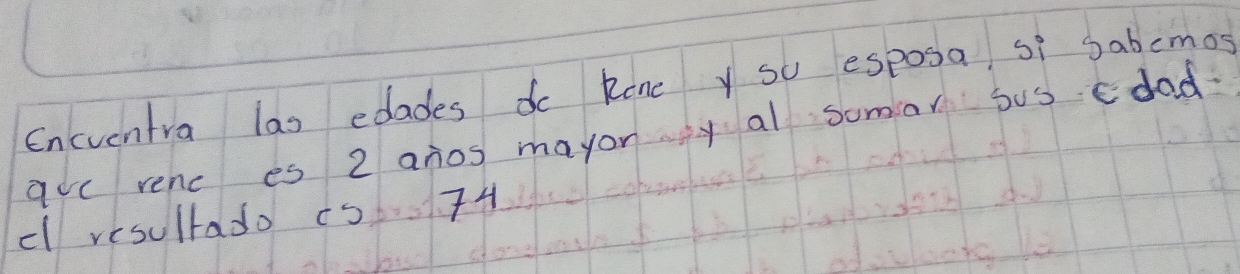 Encuentra las edades de Rene y su esposa, si sabemos
que rene es 2 años mayor y al sumar sus edad
el resultado es 74